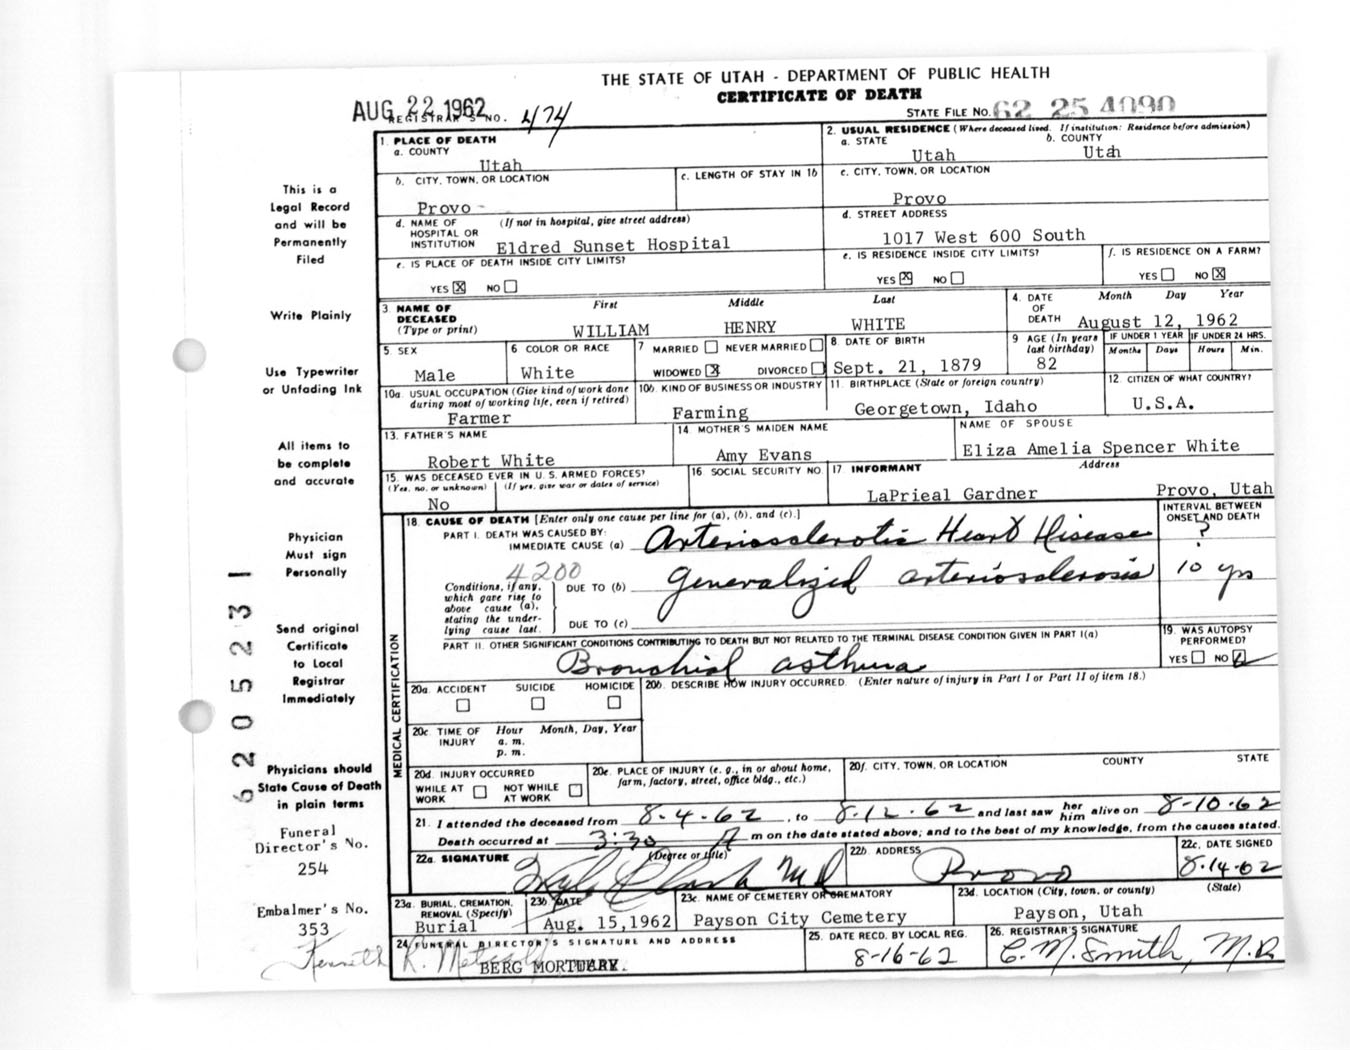 THE STATE OF UTAH - DEPARTMENT OF PUBLIC HEALTH
CERTIFICATE OF DEATH
AUG 22 1962
REGISTRAR'S NO. 474
STATE FILE NO. 62 25 4090
This is a
Legal Record
and will be
Permanently
Filed
Write Plainly
Use Typewriter
or Unfading Ink
All items to
be complete
and accurate
Physician
Must sign
Personally
Send original
Certificate
to Local
Registrar
Immediately
Physicians should
State Cause of Death
in plain terms
Funeral
Director's No.
254
Embalmer's No.
353
Kenneth R. Metcalf
6205231
1. PLACE OF DEATH
a. COUNTY
Utah
2. USUAL RESIDENCE (Where deceased lived. If institution: Residence before admission)
a. STATE b. COUNTY
Utah Utah
b. CITY, TOWN, OR LOCATION
Provo -
c. LENGTH OF STAY IN 1b
c. CITY, TOWN, OR LOCATION
Provo
d. NAME OF HOSPITAL OR INSTITUTION (If not in hospital, give street address)
Eldred Sunset Hospital
d. STREET ADDRESS
1017 West 600 South
e. IS PLACE OF DEATH INSIDE CITY LIMITS?
YES X NO
e. IS RESIDENCE INSIDE CITY LIMITS?
YES X NO
f. IS RESIDENCE ON A FARM?
YES NO X
3. NAME OF DECEASED (Type or print)
First Middle Last
WILLIAM HENRY WHITE
4. DATE OF DEATH Month Day Year
August 12, 1962
5. SEX
Male
6. COLOR OR RACE
White
7 MARRIED NEVER MARRIED
WIDOWED X DIVORCED
8. DATE OF BIRTH
Sept. 21, 1879
9 AGE (In years last birthday)
82
IF UNDER 1 YEAR
Months Days
IF UNDER 24 HRS.
Hours Min.
10a. USUAL OCCUPATION (Give kind of work done
during most of working life, even if retired)
Farmer
10b. KIND OF BUSINESS OR INDUSTRY
Farming
11. BIRTHPLACE (State or foreign country)
Georgetown, Idaho
12. CITIZEN OF WHAT COUNTRY?
U.S.A.
13. FATHER'S NAME
Robert White
14. MOTHER'S MAIDEN NAME
Amy Evans
NAME OF SPOUSE
Eliza Amelia Spencer White
15. WAS DECEASED EVER IN U. S. ARMED FORCES?
(Yes, no, or unknown) (If yes, give war or dates of service)
No
16 SOCIAL SECURITY NO.
17 INFORMANT Address
LaPrieal Gardner Provo, Utah
18. CAUSE OF DEATH [Enter only one cause per line for (a), (b), and (c).]
INTERVAL BETWEEN
ONSET AND DEATH
PART I. DEATH WAS CAUSED BY:
IMMEDIATE CAUSE (a) Arteriosclerotic Heart Disease ?
4200
Conditions, if any,
which gave rise to
above cause (a),
stating the under-
lying cause last.
DUE TO (b) Generalized arteriosclerosis 10 yrs
DUE TO (c)
PART II. OTHER SIGNIFICANT CONDITIONS CONTRIBUTING TO DEATH BUT NOT RELATED TO THE TERMINAL DISEASE CONDITION GIVEN IN PART I(a)
Bronchial asthma
19. WAS AUTOPSY
PERFORMED?
YES NO
MEDICAL CERTIFICATION
20a. ACCIDENT SUICIDE HOMICIDE
20b. DESCRIBE HOW INJURY OCCURRED. (Enter nature of injury in Part I or Part II of item 18.)
20c. TIME OF INJURY Hour Month, Day, Year
a. m.
p. m.
20d. INJURY OCCURRED
WHILE AT WORK NOT WHILE AT WORK
20e. PLACE OF INJURY (e. g., in or about home,
farm, factory, street, office bldg., etc.)
20f. CITY, TOWN, OR LOCATION COUNTY STATE
21. I attended the deceased from 8-4-62, to 8-12-62 and last saw her him alive on 8-10-62
Death occurred at 3:30 A m on the date stated above; and to the best of my knowledge, from the causes stated.
22a. SIGNATURE (Degree or title)
Clark MD
22b. ADDRESS
Provo
22c. DATE SIGNED
8-14-62
23a. BURIAL, CREMATION,
REMOVAL (Specify)
Burial
23b. DATE
Aug. 15,1962
23c. NAME OF CEMETERY OR CREMATORY
Payson City Cemetery
23d. LOCATION (City, town, or county) (State)
Payson, Utah
24 FUNERAL DIRECTOR'S SIGNATURE AND ADDRESS
BERG MORTUARY.
25. DATE RECD. BY LOCAL REG.
8-16-62
26. REGISTRAR'S SIGNATURE
C. M. Smith, M.D.